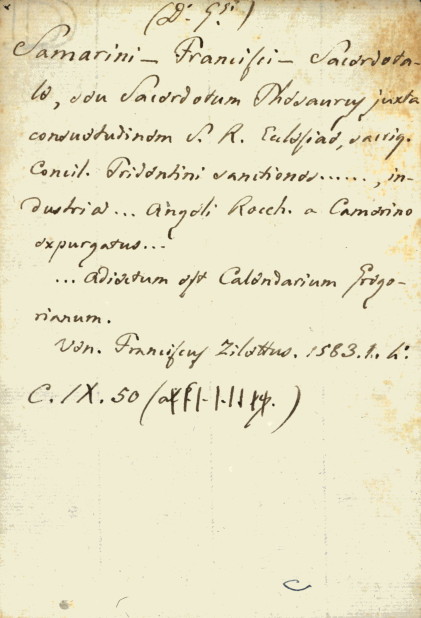 (D. G.)
Samarini - Francisci - Sacerdota-
le, seu Sacerdotum Thesaurus juxta
consuetudinem S. R. Ecclesiae, sacriq.
Concil. Tridentini sanctiones......, in-
dustria ... Angeli Rocch. a Camerino
expurgatus...
... adiectum est Calendarium Grego-
rianum.
Ven. Franciscus Zilettus. 1583. 1. k:
C. IX. 50 (